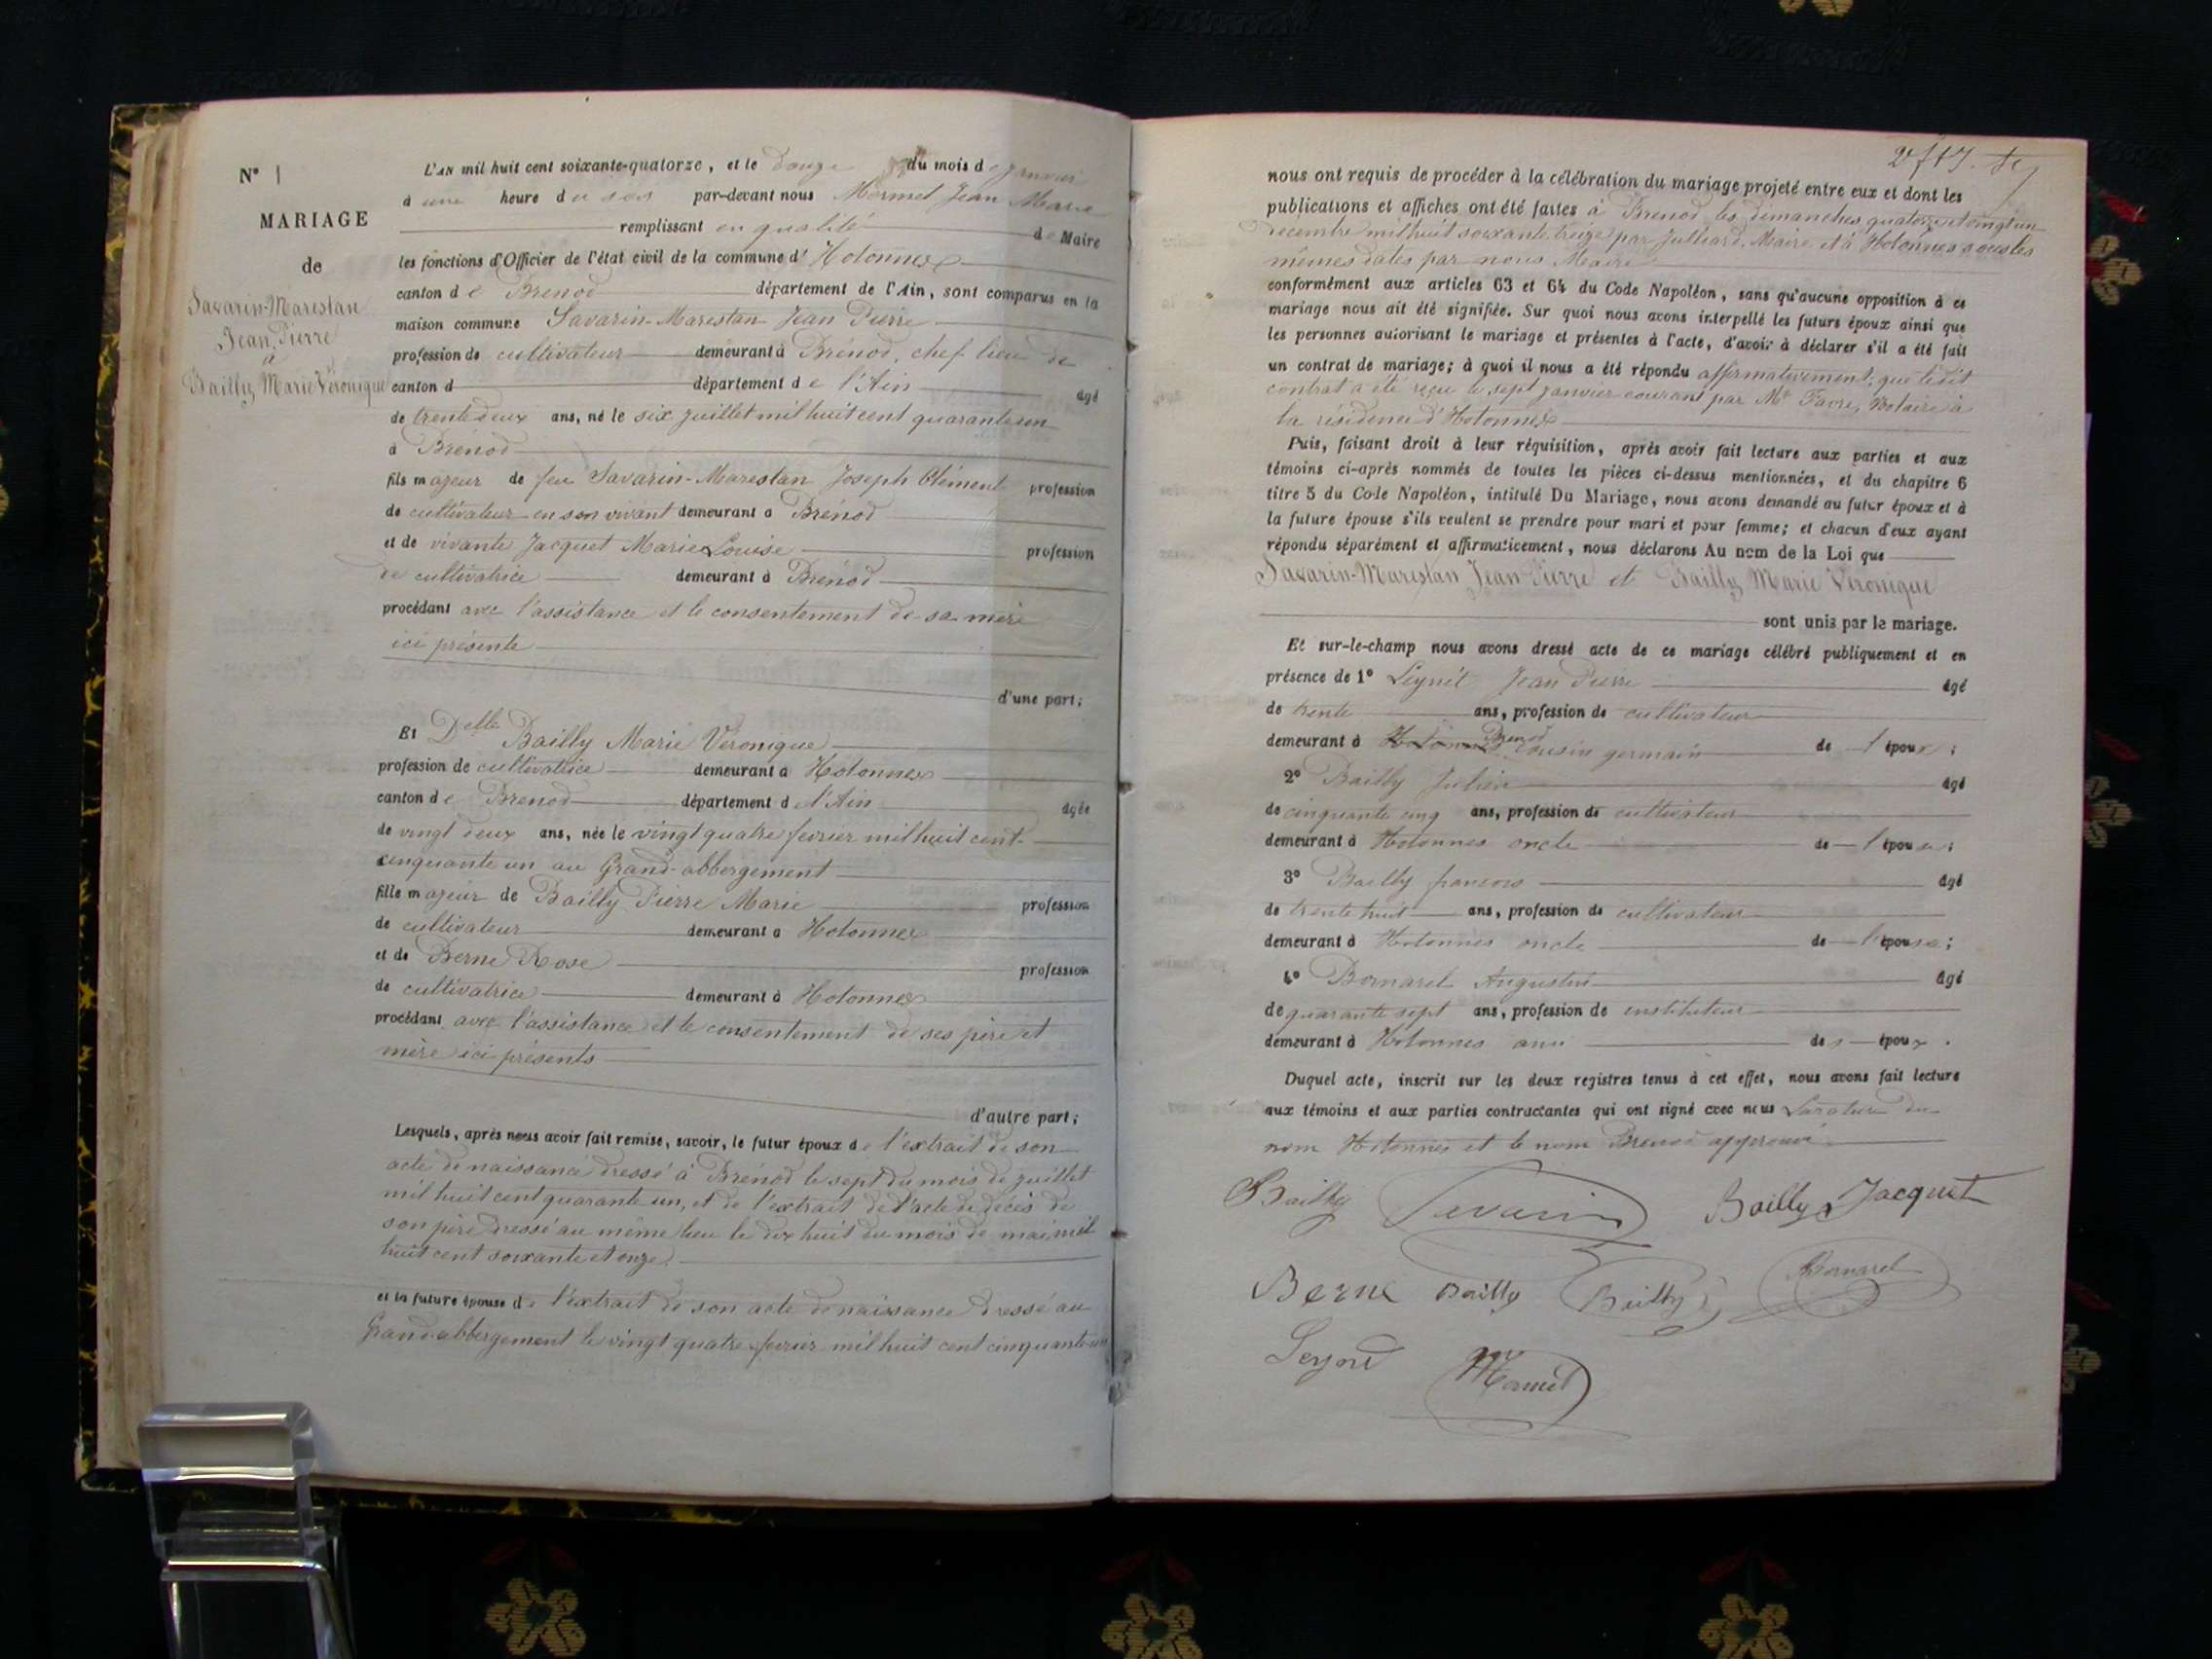 N° 1
MARIAGE
de
Savarin-Marestan
Jean Pierre
à
Bailly Marie Véronique
L'AN mil huit cent soixante-quatorze, et le douze du mois de janvier
à une heure du soir par-devant nous Mermet Jean Marie
remplissant en qualité de Maire
les fonctions d'Officier de l'état civil de la commune d'Hotonnes
canton de Brenod département de l'Ain, sont comparus en la
maison commune Savarin-Marestan Jean Pierre
profession de cultivateur demeurant à Brénod, chef lieu de
canton d département de l'Ain âgé
de trente deux ans, né le six juillet mil huit cent quarante un
à Brénod
fils majeur de feu Savarin-Marestan Joseph Clément profession
de cultivateur en son vivant demeurant à Brénod
et de vivante Jacquet Marie Louise profession
de cultivatrice demeurant à Brénod
procédant avec l'assistance et le consentement de sa mère
ici présente
d'une part;
Et Delle Bailly Marie Véronique
profession de cultivatrice demeurant à Hotonnes
canton de Brenod département de l'Ain âgée
de vingt deux ans, née le vingt quatre fevrier mil huit cent
cinquante un au Grand-abbergement
fille majeur de Bailly Pierre Marie profession
de cultivateur demeurant à Hotonnes
et de Berne Rose profession
de cultivatrice demeurant à Hotonnes
procédant avec l'assistance et le consentement de ses père et
mère ici présents
d'autre part;
Lesquels, après nous avoir fait remise, savoir, le futur époux de l'extrait de son
acte de naissance dressé à Brénod le sept du mois de juillet
mil huit cent quarante un, et de l'extrait de l'acte de décès de
son père dressé au même lieu le dix huit du mois de mai mil
huit cent soixante et onze.
et la future épouse de l'extrait de son acte de naissance dressé au
Grand-abbergement le vingt quatre fevrier mil huit cent cinquante un
nous ont requis de procéder à la célébration du mariage projeté entre eux et dont les
publications et affiches ont été faites à Brenod les dimanches quatorze et vingt un
decembre mil huit soixante treize par Julliard, Maire et à Hotonnes sous les
mêmes dates par nous Maire
conformément aux articles 63 et 64 du Code Napoléon, sans qu'aucune opposition à ce
mariage nous ait été signifiée. Sur quoi nous avons interpellé les futurs époux ainsi que
les personnes autorisant le mariage et présentes à l'acte, d'avoir à déclarer s'il a été fait
un contrat de mariage; à quoi il nous a été répondu affirmativement; que ledit
contrat a été reçu le sept janvier courant par Me Favre, Notaire à
la résidence d'Hotonnes
Puis, faisant droit à leur réquisition, après avoir fait lecture aux parties et aux
témoins ci-après nommés de toutes les pièces ci-dessus mentionnées, et du chapitre 6
titre 5 du Code Napoléon, intitulé Du Mariage, nous avons demandé au futur époux et à
la future épouse s'ils veulent se prendre pour mari et pour femme; et chacun d'eux ayant
répondu séparément et affirmativement, nous déclarons Au nom de la Loi que
Savarin-Marestan Jean Pierre et Bailly Marie Véronique
sont unis par le mariage.
Et sur-le-champ nous avons dressé acte de ce mariage célébré publiquement et en
présence de 1° Jean Pierre âgé
de trente ans, profession de cultivateur
demeurant à Hotonnes Brenod cousin germain de l'époux;
2° Bailly Julien âgé
de cinquante cinq ans, profession de cultivateur
demeurant à Hotonnes oncle de l'épouse;
3° Bailly francois âgé
de trente huit ans, profession de cultivateur
demeurant à Hotonnes oncle de l'épouse;
4° Bornarel Augustin âgé
de quarante sept ans, profession de instituteur
demeurant à Hotonnes ami des époux.
Duquel acte, inscrit sur les deux registres tenus à cet effet, nous avons fait lecture
aux témoins et aux parties contractantes qui ont signé avec nous La rature du
nom Hotonnes et le nom Brenod approuvé
Bailly Savarin Bailly Jacquet
Berne Bailly Bailly Bornarel
Mermet